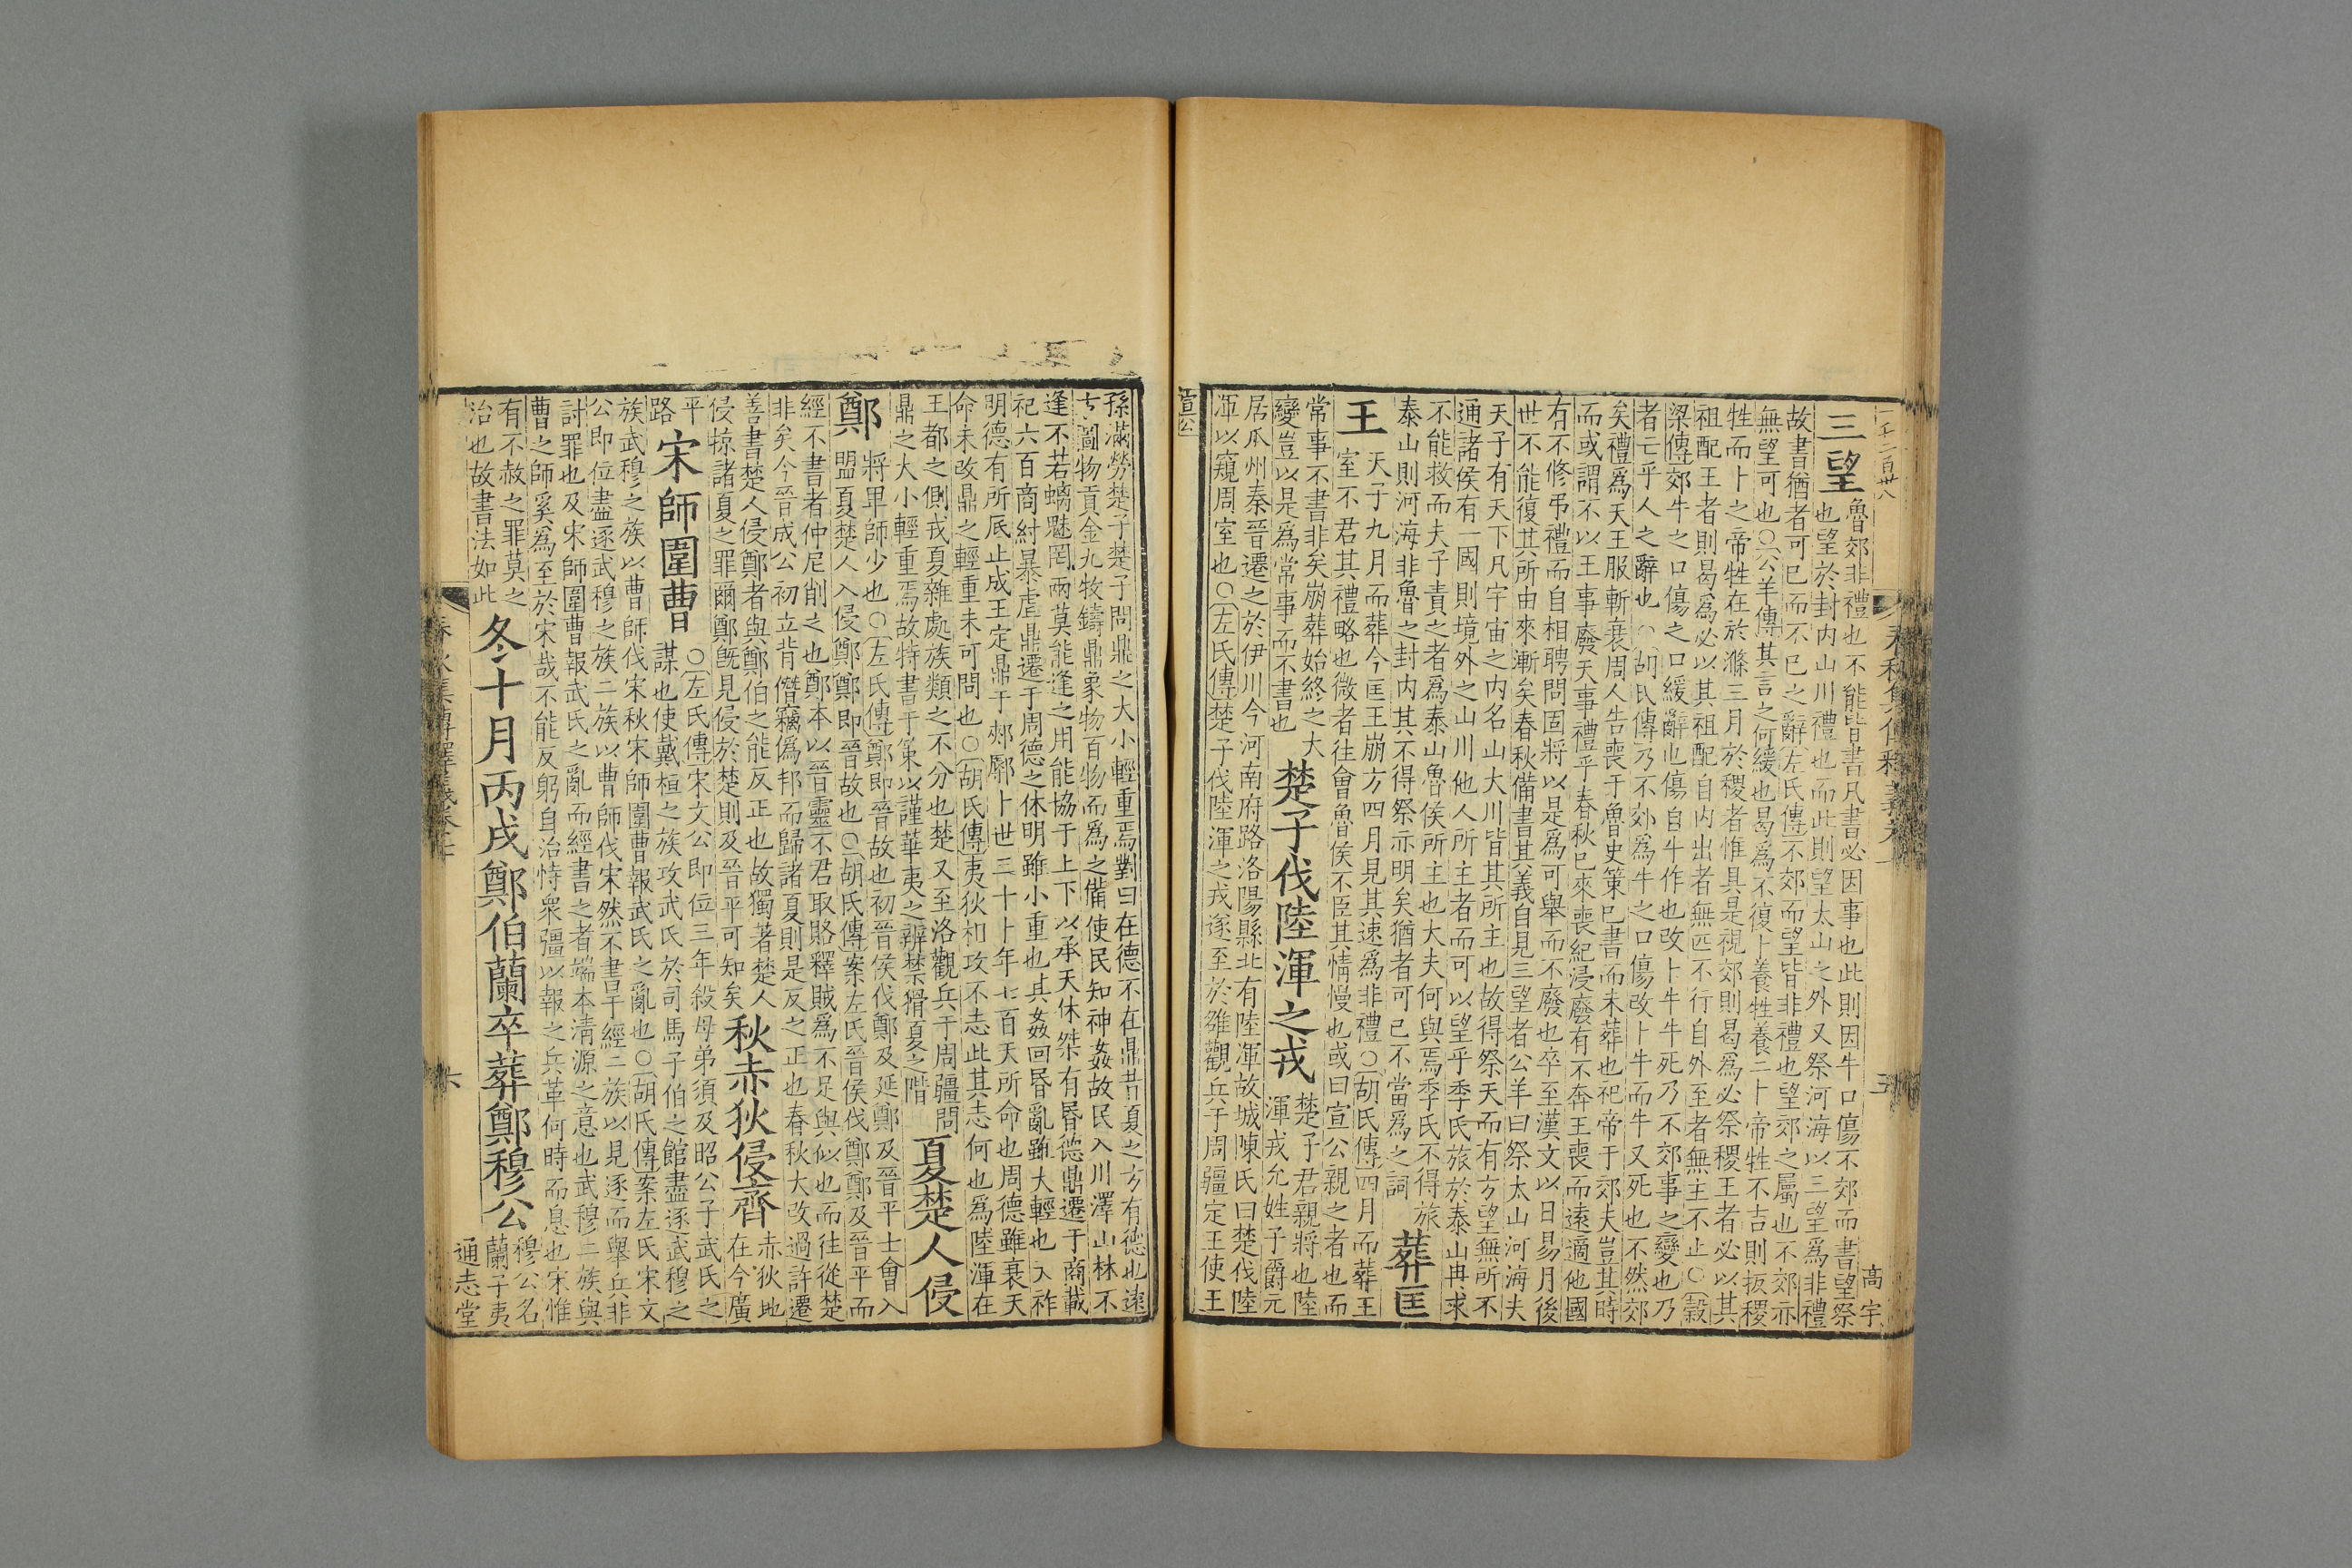 一千二百卅八
高字
五
三望
魯郊非禮也不能皆書凡書必因事也此則因牛口傷不郊而書望祭
也望於封内山川禮也而此則望太山之外又祭河海以三望爲非禮
故書猶者可已而不已之辭左氏傳不郊而望皆非禮也望郊之屬也不郊亦
無望可也○公羊傳其言之何緩也曷爲不復卜養牲養二卜帝牲不吉則扳稷
牲而卜之帝牲在於滌三月於稷者惟具是視郊則曷爲必祭稷王者必以其
祖配王者則曷爲必以其祖配自内出者無匹不行自外至者無主不止○穀
梁傳郊牛之口傷之口緩辭也傷自牛作也改卜牛牛死乃不郊事之變也乃
者亡乎人之辭也○胡氏傳乃不郊爲牛之口傷改卜牛而牛又死也不然郊
矣禮爲天王服斬衰周人告喪于魯史策已書而未葬也祀帝于郊夫豈其時
而或謂不以王事廢天事禮乎春秋已來喪紀浸廢有不奔王喪而遠適他國
有不修弔禮而自相聘問固將以是爲可舉而不廢也卒至漢文以日易月後
世不能復其所由來漸矣春秋備書其義自見三望者公羊曰祭太山河海夫
天子有天下凡宇宙之内名山大川皆其所主也故得祭天而有方望無所不
通諸侯有一國則境外之山川他人所主者而可以望乎季氏旅於泰山冉求
不能救而夫子責之者爲泰山魯侯所主也大夫何與焉季氏不得旅
泰山則河海非魯之封内其不得祭亦明矣猶者可已不當爲之詞
葬匡
王
天子九月而葬今匡王崩方四月見其速爲非禮○胡氏傳四月而葬王
室不君其禮略也微者往會魯侯不臣其情慢也或曰宣公親之者也而
常事不書非矣崩葬始終之大
變豈以是爲常事而不書也
楚子伐陸渾之戎
楚子君親將也陸
渾戎允姓子爵元
居瓜州秦晉遷之於伊川今河南府路洛陽縣北有陸渾故城陳氏曰楚伐陸
渾以窺周室也○左氏傳楚子伐陸渾之戎遂至於雒觀兵于周疆定王使王
宣公
孫滿勞楚子楚子問鼎之大小輕重焉對曰在德不在鼎昔夏之方有德也遠
方圖物貢金九牧鑄鼎象物百物而爲之備使民知神姦故民入川澤山林不
逢不若螭魅罔兩莫能逢之用能協于上下以承天休桀有昬德鼎遷于商載
祀六百商紂暴虐鼎遷于周德之休明雖小重也其姦回昬亂雖大輕也天祚
明德有所厎止成王定鼎于郟鄏卜世三十卜年七百天所命也周德雖衰天
命未改鼎之輕重未可問也○胡氏傳夷狄相攻不志此其志何也爲陸渾在
王都之側戎夏雜處族類之不分也楚又至洛觀兵于周疆問
鼎之大小輕重焉故特書于策以謹華夷之辨禁猾夏之階
夏楚人侵
鄭
將卑師少也○左氏傳鄭即晉故也初晉侯伐鄭及延鄭及晉平士會入
盟夏楚人入侵鄭鄭即晉故也○胡氏傳案左氏晉侯伐鄭鄭及晉平而
經不書者仲尼削之也鄭本以晉靈不君取賂釋賊爲不足與似也而往從楚
非矣今晉成公初立背僭竊僞邦而歸諸夏則是反之正也春秋大改過許遷
善書楚人侵鄭者與鄭伯之能反正也故獨著楚人
侵掠諸夏之罪爾鄭旣見侵於楚則及晉平可知矣
秋赤狄侵齊
赤狄地
在今廣
平
路
宋師圍曹
○左氏傳宋文公即位三年殺母弟須及昭公子武氏之
謀也使戴桓之族攻武氏於司馬子伯之館盡逐武穆之
族武穆之族以曹師伐宋秋宋師圍曹報武氏之亂也○胡氏傳案左氏宋文
公即位盡逐武穆之族二族以曹師伐宋然不書于經二族以見逐而舉兵非
討罪也及宋師圍曹報武氏之亂而經書之者端本清源之意也武穆二族與
曹之師奚爲至於宋哉不能反躬自治恃衆彊以報之兵革何時而息也宋惟
有不赦之罪莫之
治也故書法如此
冬十月丙戌鄭伯蘭卒葬鄭穆公
穆公名
蘭子夷
六
通志堂